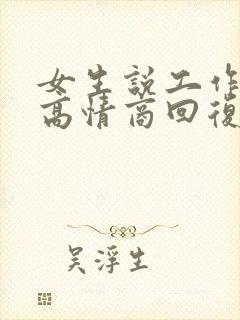 女生說工作
高情商回復
吴浮生